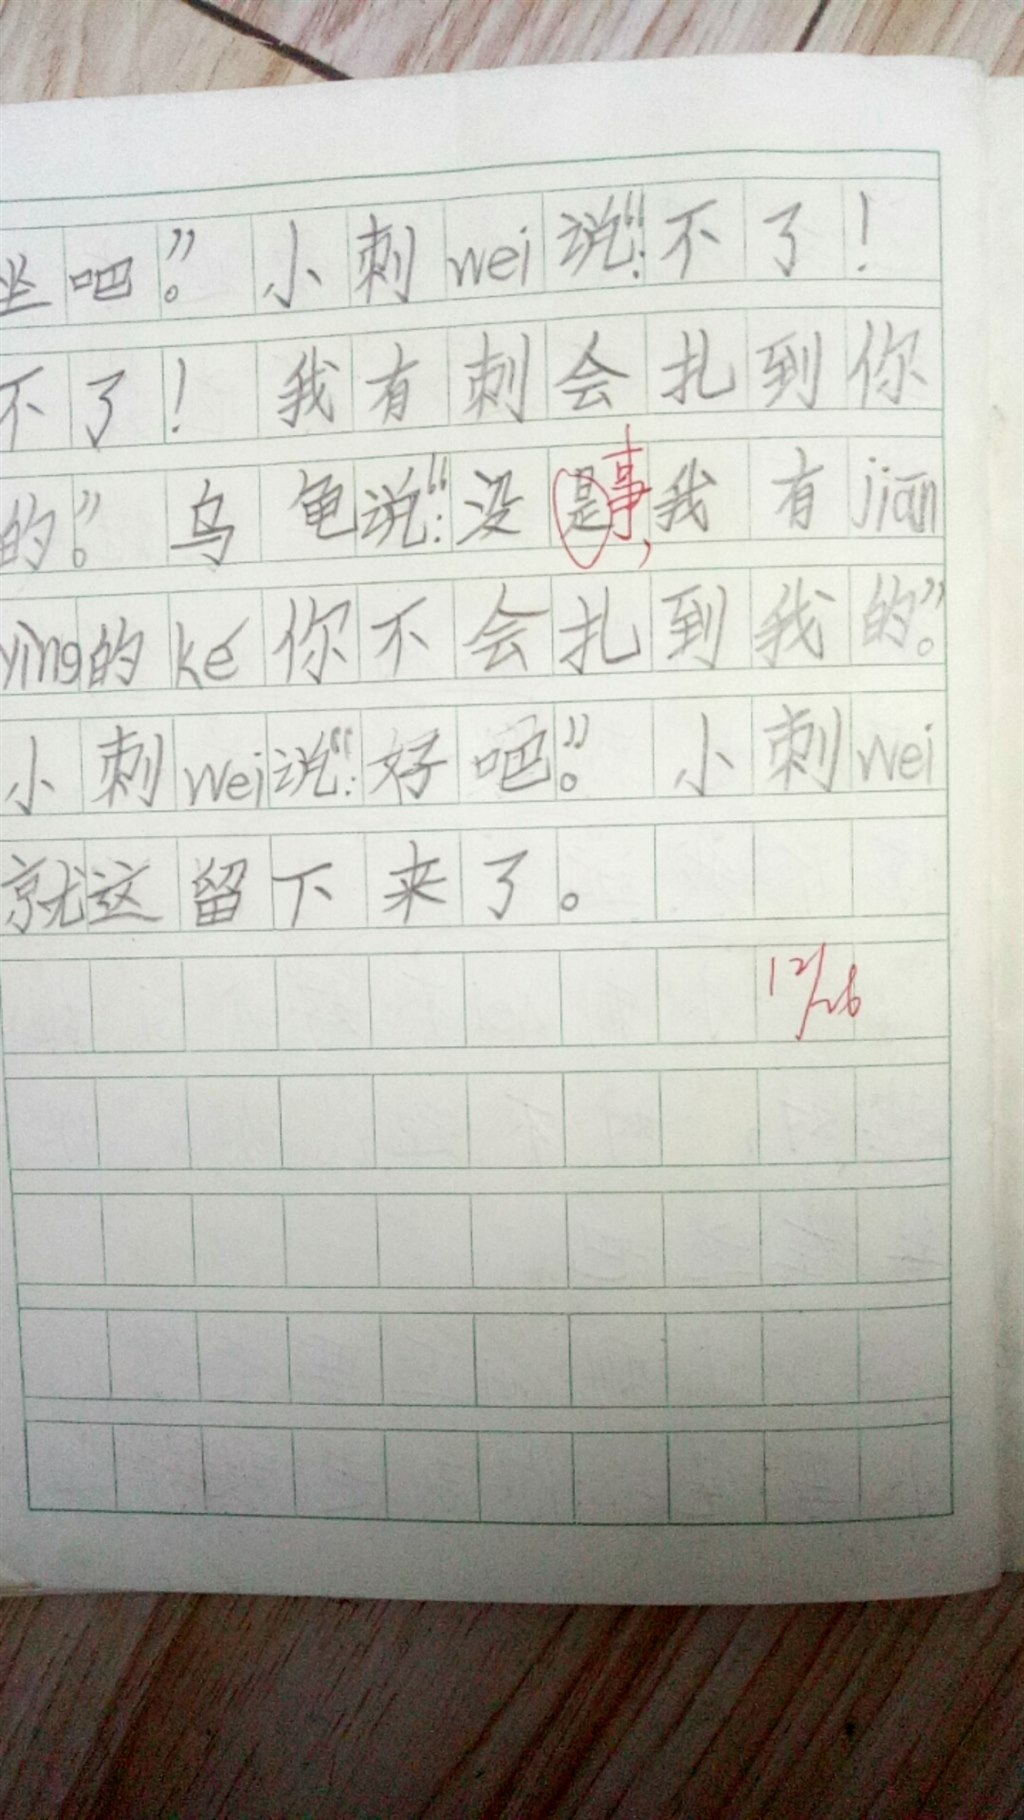 坐吧。”小刺wei说：“不了！
不了！我有刺会扎到你
的。”乌龟说：“没是事，我有jiān
yìng的ké你不会扎到我的。”
小刺wei说：“好吧。”小刺wei
就这留下来了。
12/26